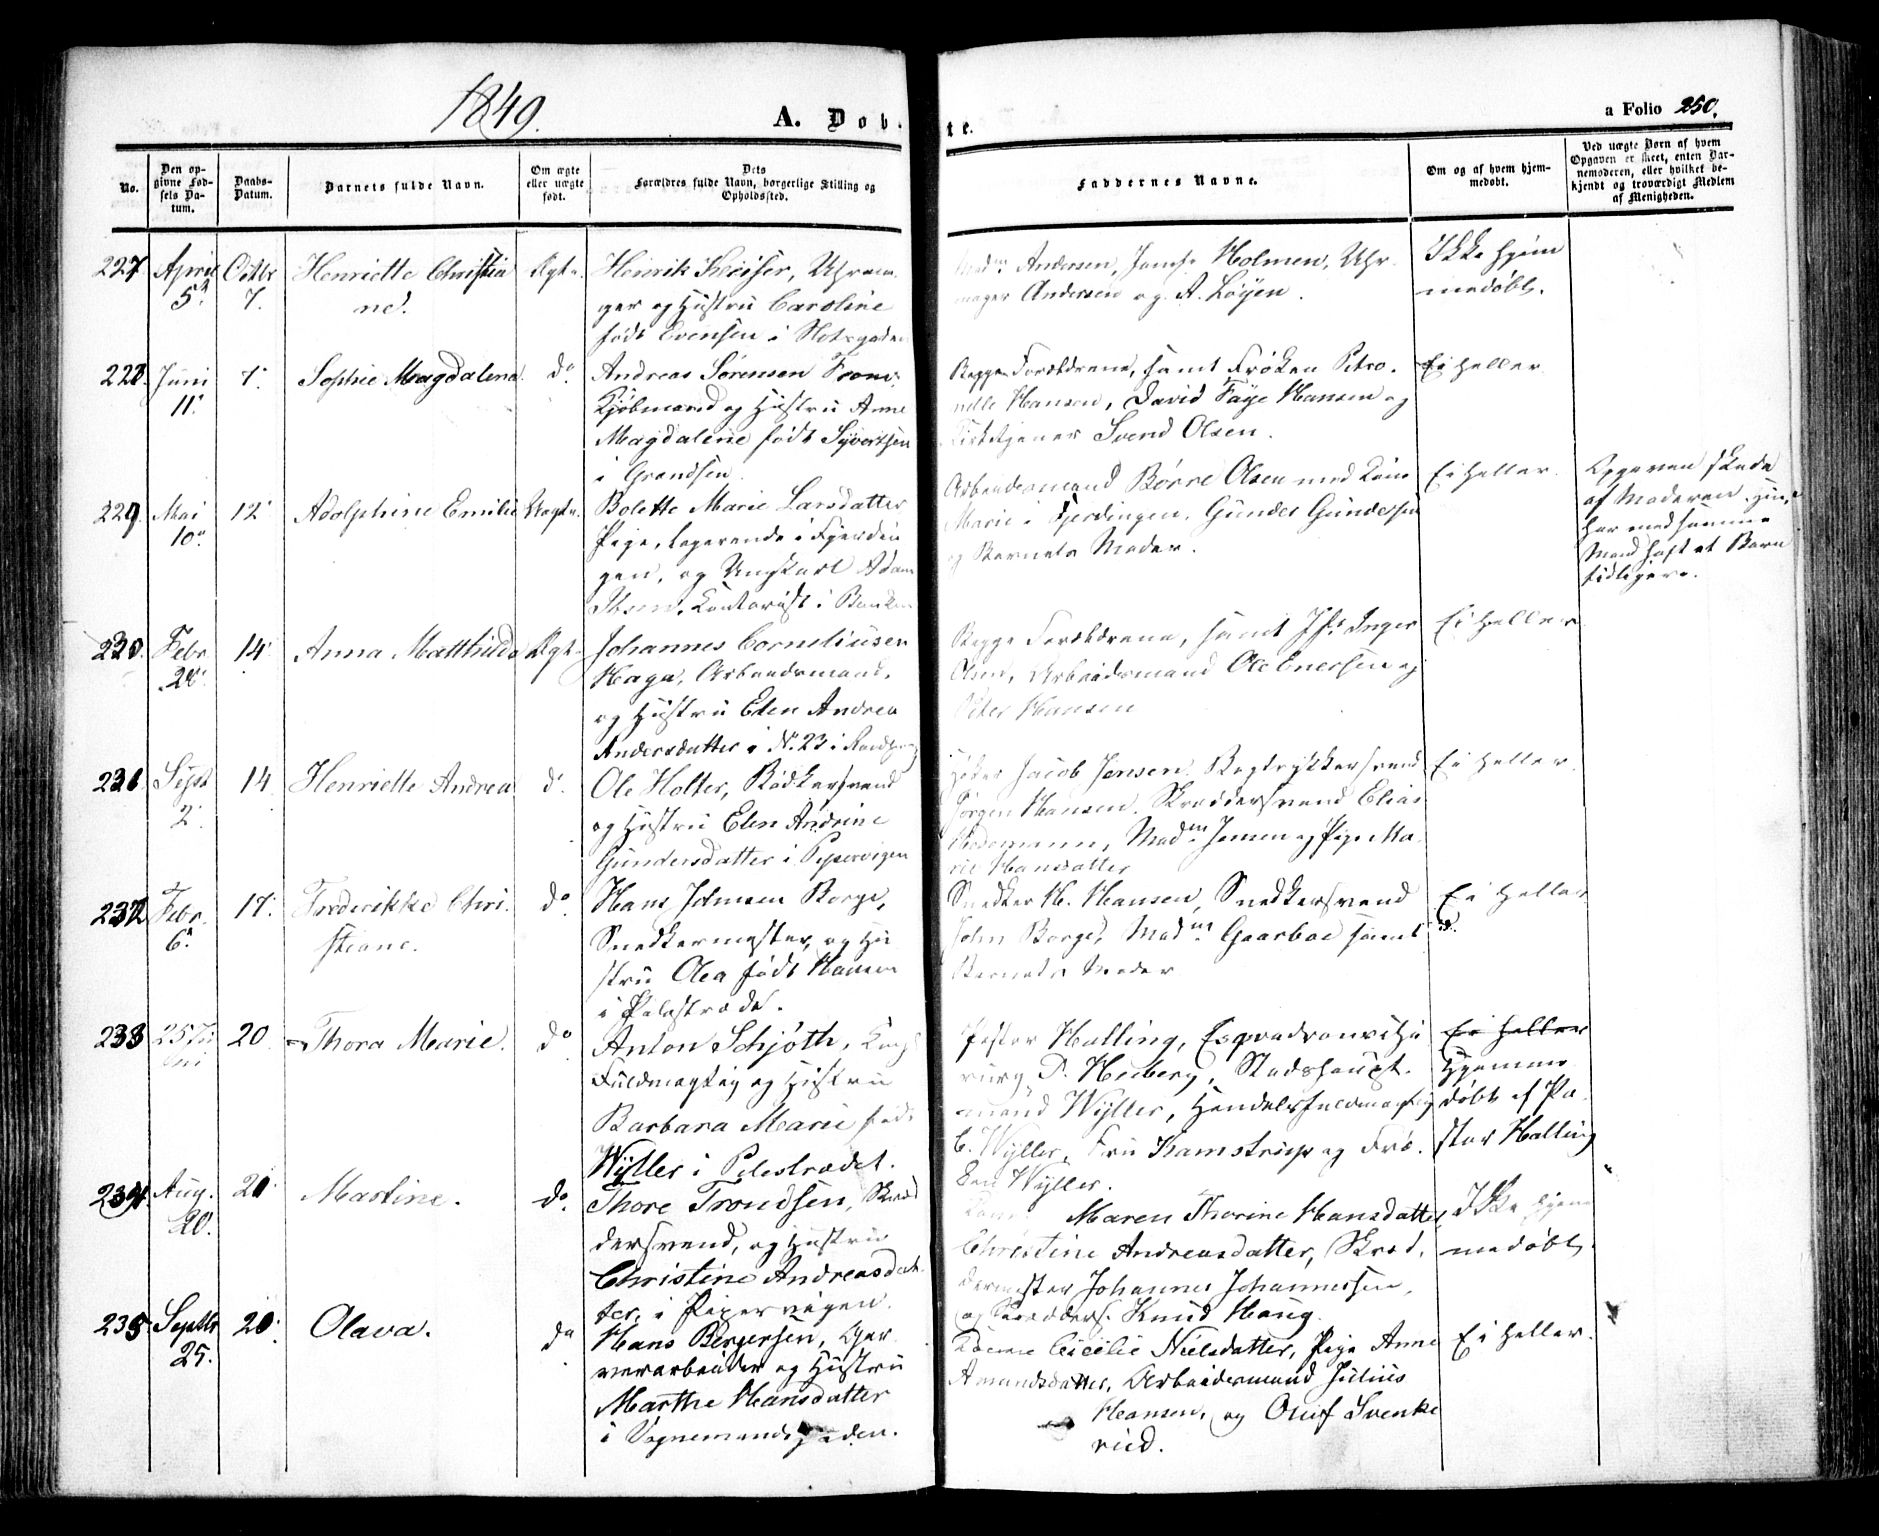 1849.
A. Døbte.
a Folio 250.
No.
Den opgivne Fødsels Datum.
Daabs-Datum.
Barnets fulde Navn.
Om ægte eller uægte født.
Dets Forældres fulde Navn, borgerlige Stilling og Opholdssted.
Faddernes Navne.
Om og af hvem hjemmedøbt.
Ved uægte Børn af hvem Opgaven er skeet, enten Barnemoderen, eller hvilket bekjendt og troværdigt Medlem af Menigheden.
227 April 5. Octbr 7. Henriette Christiane. Ægte
Henrik
ger og Hustru Caroline
født Evensen i
Andersen, Holmen, Uhr-
mager Andersen og A. Løijen.
Ikke hjem
medøbt.
228. Juni 11. 7. Sophie Magdalena do
Andreas Sørensen
Kjøbmand og Hustru Anne
Magdalene født Syvertsen
i Grændsen
Begge Forældrene, samt Frøken Petro-
nelle Hansen, David Faye Hansen og
Kirketjener Svend Olsen.
Ei heller
229. Mai 10. 12. Adolphine Emilie Uægte
Bolette Marie Larsdatter
Pige, logerende i Fjerdin
gen, og Ungkarl Adam
Ibsen, Contorist i Banken
Arbeidsmand Børre Olsen med Kone
Marie i Fjerdingen, Gunder Gundersen
og Barnets Moder.
Ei heller.
Opgaven skede
af Moderen. Hun
har med samme
Mand haft et Barn
tidligere.
230. Febr 28. 14. Anna Matthilde Ægte
Johannes Corneliusen
Haga, Arbeidsmand,
og Hustru Elen Andrea
Andersdatter i No. 23 i
Begge Forældrene, samt Inger
Olsen, Arbeidsmand Ole Enersen og
Peter Hansen
Ei heller
231. Sept 2. 14 Henriette Andrea do.
Ole Holter, Bødkersvend
og Hustru Elen Andrine
Gundersdatter i Pipervigen
Jacob Jensen, Bogtrykkersvend
Jørgen Hansen, Skræddersvend Elias
Madm Jensen og Pige Ma-
rie Hansdatter
Ei heller.
232 Febr. 6. 17. Frederikke Christiane. do
Hans Johnsen Borge,
Snedkermester, og Hu
stru Olea født Hansen
i Pilestrædet.
Snedker H. Hansen, Snedkersvend
John Borge, Madm Gaarboe samt
Barnets Moder
Ei heller
233 25 Juni 20. Thora Marie. do
Anton Schjøth,
Fuldmægtig og Hustru
Barbara Marie født
Wyller i Pilestrædet.
Pastor Halling, Esqvadronschi
rurg P. Heiberg, Stadshaupt-
mand Wyller, Handelsfuldmægtig
C. Wyller, Fru Kamstrup og Frø-
ken Wyller.
Ei heller
Hjemme
døbt af Pa-
stor Halling
234. Aug. 20. 21. Martine. do.
Thore Trondsen, Skræd
dersvend, og Hustru
Christine Andreasdat-
ter, i Pipervigen.
Maren Thorine Hansdatter,
Christine Andreasdatter, Skræd-
dermester Johannes Johannessen,
og Skrædders. Knud Haug.
Ikke hjem
medøbt.
235 Septbr 25. 28. Olava. do
Hans Bergersen, Gar
verarbeider og Hustru
Marthe Hansdatter
i Vognmandsgaden.
Konen Cicilie Nielsdatter, Pige Anne
Amundsdatter, Arbeidsmand Julius
Hansen, og Oluf Svenke
rud.
Ei heller.